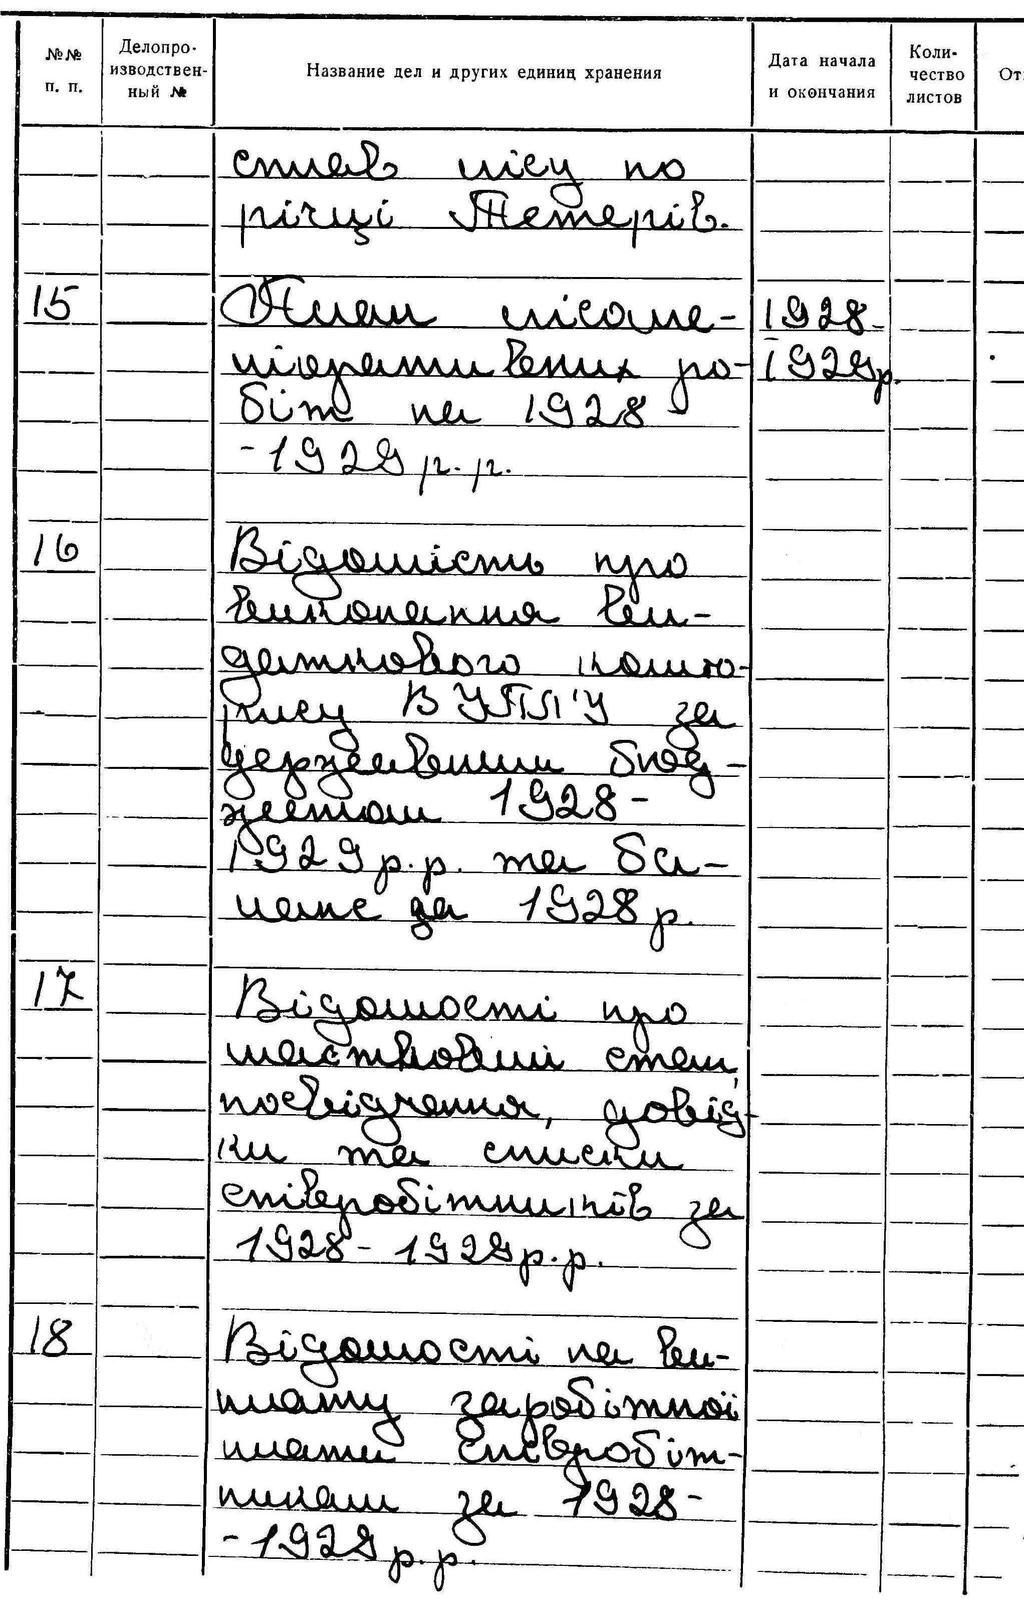 №№
п. п.
Делопро-
изводствен-
ный №
Название дел и других единиц хранения
Дата начала
и окончания
Коли-
чество
листов
От
сплав лісу по
річці Тетерів.
15
План лісоме-
ліоративних ро-
біт на 1928
-1929 р.р.
1928-
1929р.
16
Відомість про
виконання ви-
даткового кошто-
рису ВУПЛ'У за
державним бюд-
жетом 1928-
1929 р.р. та ба-
ланс за 1928 р.
17
Відомості про
майновий стан,
посвідчення, довід-
ки та списки
співробітників за
1928-1929 р.р.
18
Відомості на ви-
плату заробітної
плати співробіт-
никам за 1928-
-1929 р.р.